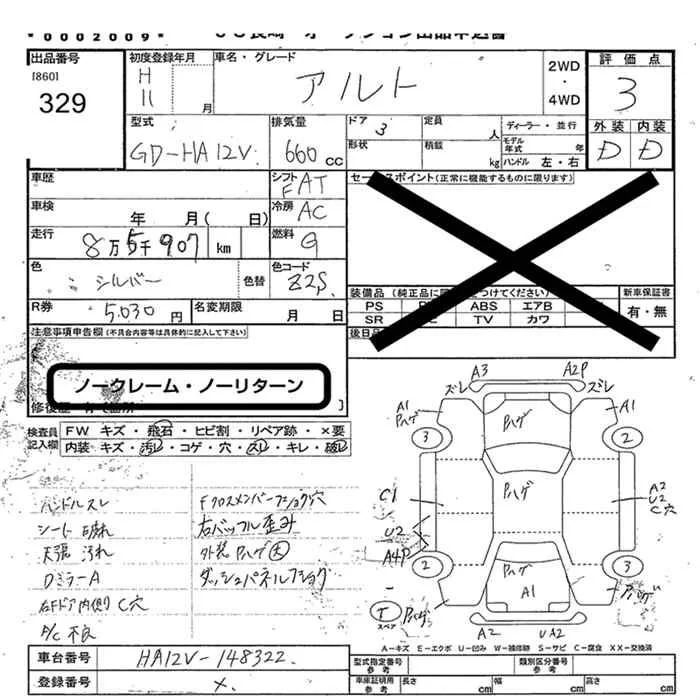 * 0 0 0 2 0 0 9 *
出品番号
[860]
329
初度登録年月
H
11 月
車名・グレード
アルト
2WD
・
4WD
評価点
3
外装 内装
D D
型式
GD-HA12V
排気量
660 cc
ドア 3
定員 人
ディーラー・並行
形状
積載 kg
モデル年式 年
ハンドル 左・右
車歴
シフト FAT
車検 年 月( 日)
冷房 AC
走行 8万5千907 km
燃料 G
色 シルバー
色替
色コード Z2S
R券 5,030 円
名変期限 月 日
セールスポイント(正常に機能するものに限ります)
装備品
新車保証書
有・無
PS ABS エアB
SR TV カワ
後日
注意事項申告欄(不具合内容等は具体的に記入して下さい)
ノークレーム・ノーリターン
検査員記入欄
FW キズ・飛石・ヒビ割・リペア跡・×要
内装・キズ・汚レ・コゲ・穴・スレ・キレ・破レ
ハンドルスレ
シート 破れ
天張 汚れ
DミラーA
右Fドア内側り C穴
A/C 不良
Fクロスメンバーフショク穴
右バッフル歪み
外装Pハゲ大
ダッシュパネルフショク
A3 A2P
ズレ ズレ
A1
Pハゲ
Pハゲ
A1
3 2
Pハゲ
C1
A2
U2
C穴
U2
A4P
2 3
Pハゲ
A1
T
スペア
Pハゲ
Pハゲ
A2 UA2
A-キズ E-エクボ U-凹み W-補修跡 S-サビ C-腐食 XX-交換済
車台番号 HA12V-148322
登録番号 ×
型式指定番号 参考
類別区分番号 参考
車庫証明用 参考
長さ cm
幅 cm
高さ cm